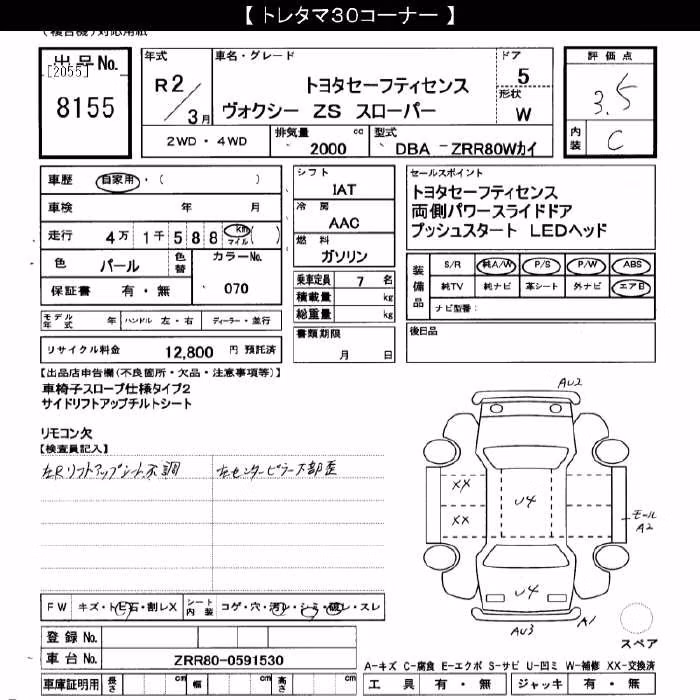 【 トレタマ30コーナー 】
(複合機)対応用紙
出品No.
[2055]
8155
年式
R2/3月
車名・グレード
トヨタセーフティセンス
ヴォクシー ZS スローパー
ドア
5
形状
W
評価点
3.5
内装
C
2WD・4WD
排気量 cc
2000
型式
DBA －ZRR80Wカイ
車歴 自家用・( )
車検 年 月
走行 4万 1千 5 8 8 km マイル ( )
色 パール 色替
カラーNo.
070
保証書 有・無
モデル年式 年 ハンドル 左・右 ディーラー・並行
リサイクル料金 12,800 円 預託済
シフト
IAT
冷房
AAC
燃料
ガソリン
乗車定員 7 名
積載量 kg
総重量 kg
書類期限
月 日
セールスポイント
トヨタセーフティセンス
両側パワースライドドア
プッシュスタート LEDヘッド
装備品
S/R 純A/W P/S P/W ABS
純TV 純ナビ 革シート 外ナビ エアB
ナビ型番:
後日品
【出品店申告欄(不良箇所・欠品・注意事項等)】
車椅子スロープ仕様タイプ2
サイドリフトアップチルトシート
リモコン欠
【検査員記入】
左Rリフトアップシート不調
左センターピラー下部歪
AU2
XX
XX
U4
モール
A2
U4
AU3
A1
スペア
FW キズ・トビ石・割レX
シート内装 コゲ・穴・汚レ・シミ・破レ・スレ
登録No.
車台No. ZRR80-0591530
車庫証明用 長さ cm 幅 cm 高さ cm
A-キズ C-腐食 E-エクボ S-サビ U-凹ミ W-補修 XX-交換済
工具 有・無 ジャッキ 有・無